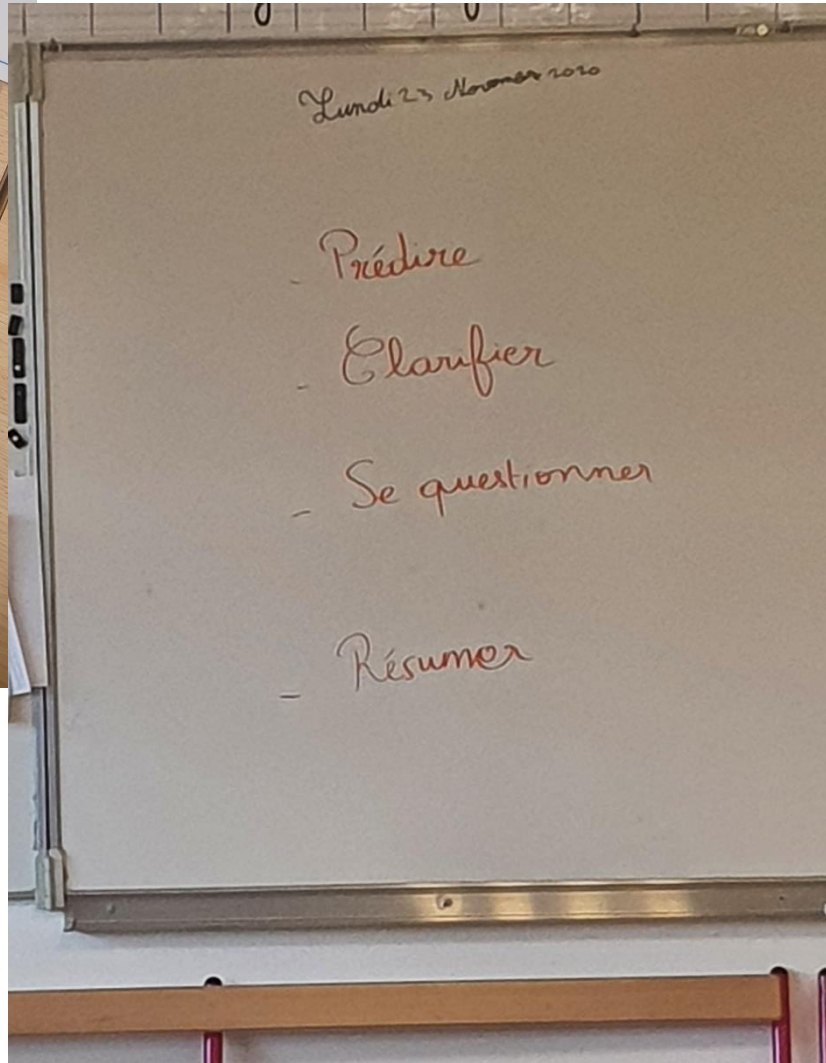 Lundi 23 Novembre 2020
- Prédire
- Clarifier
- Se questionner
- Résumer